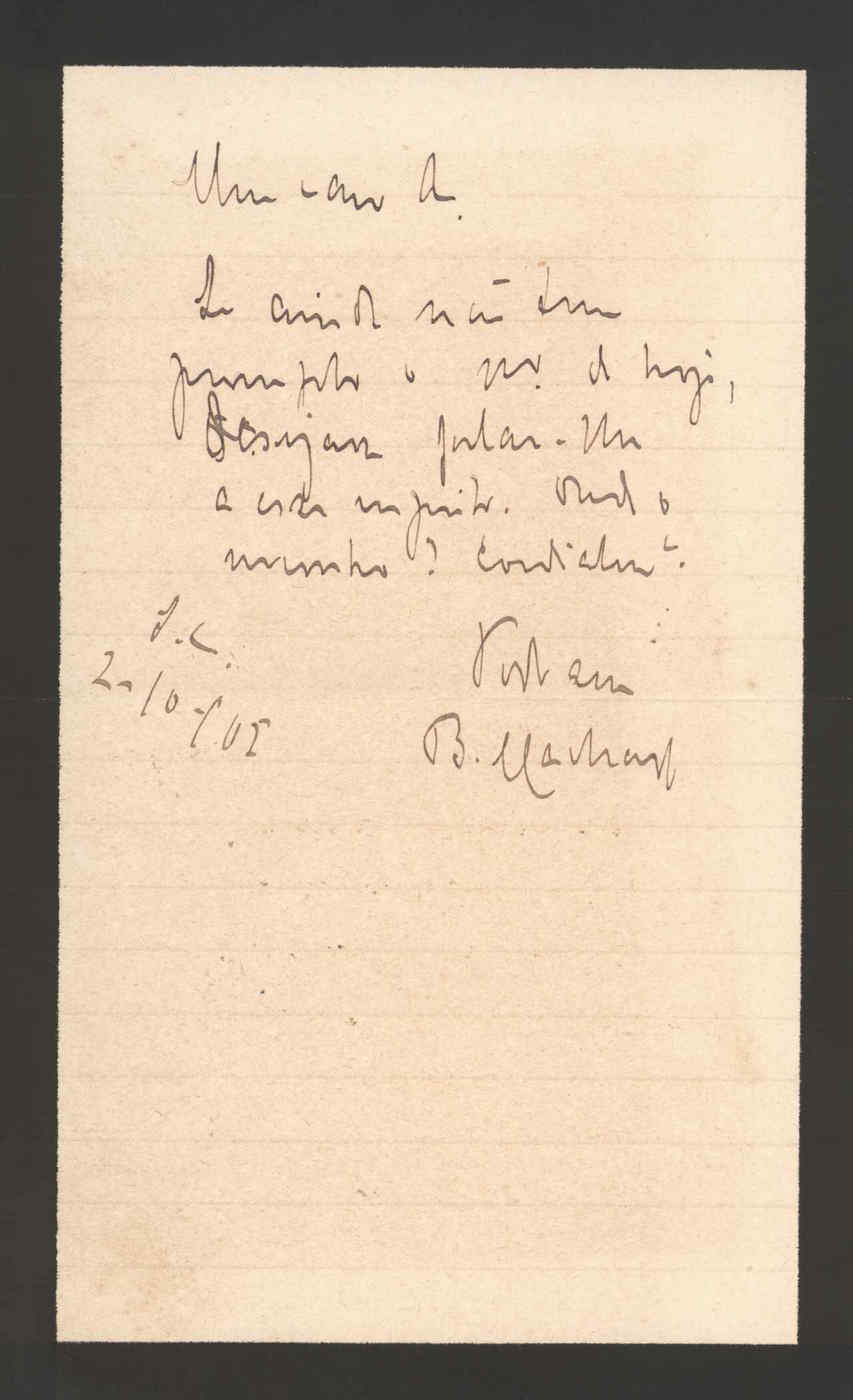 Meu caro A.
Se ainda não tem
prompto o nº. de hoje,
desejava falar-lhe
a esse respeito. Onde o
encontro? Cordialmte.
S. C.
2-10-905
Vosso am
B. Machado